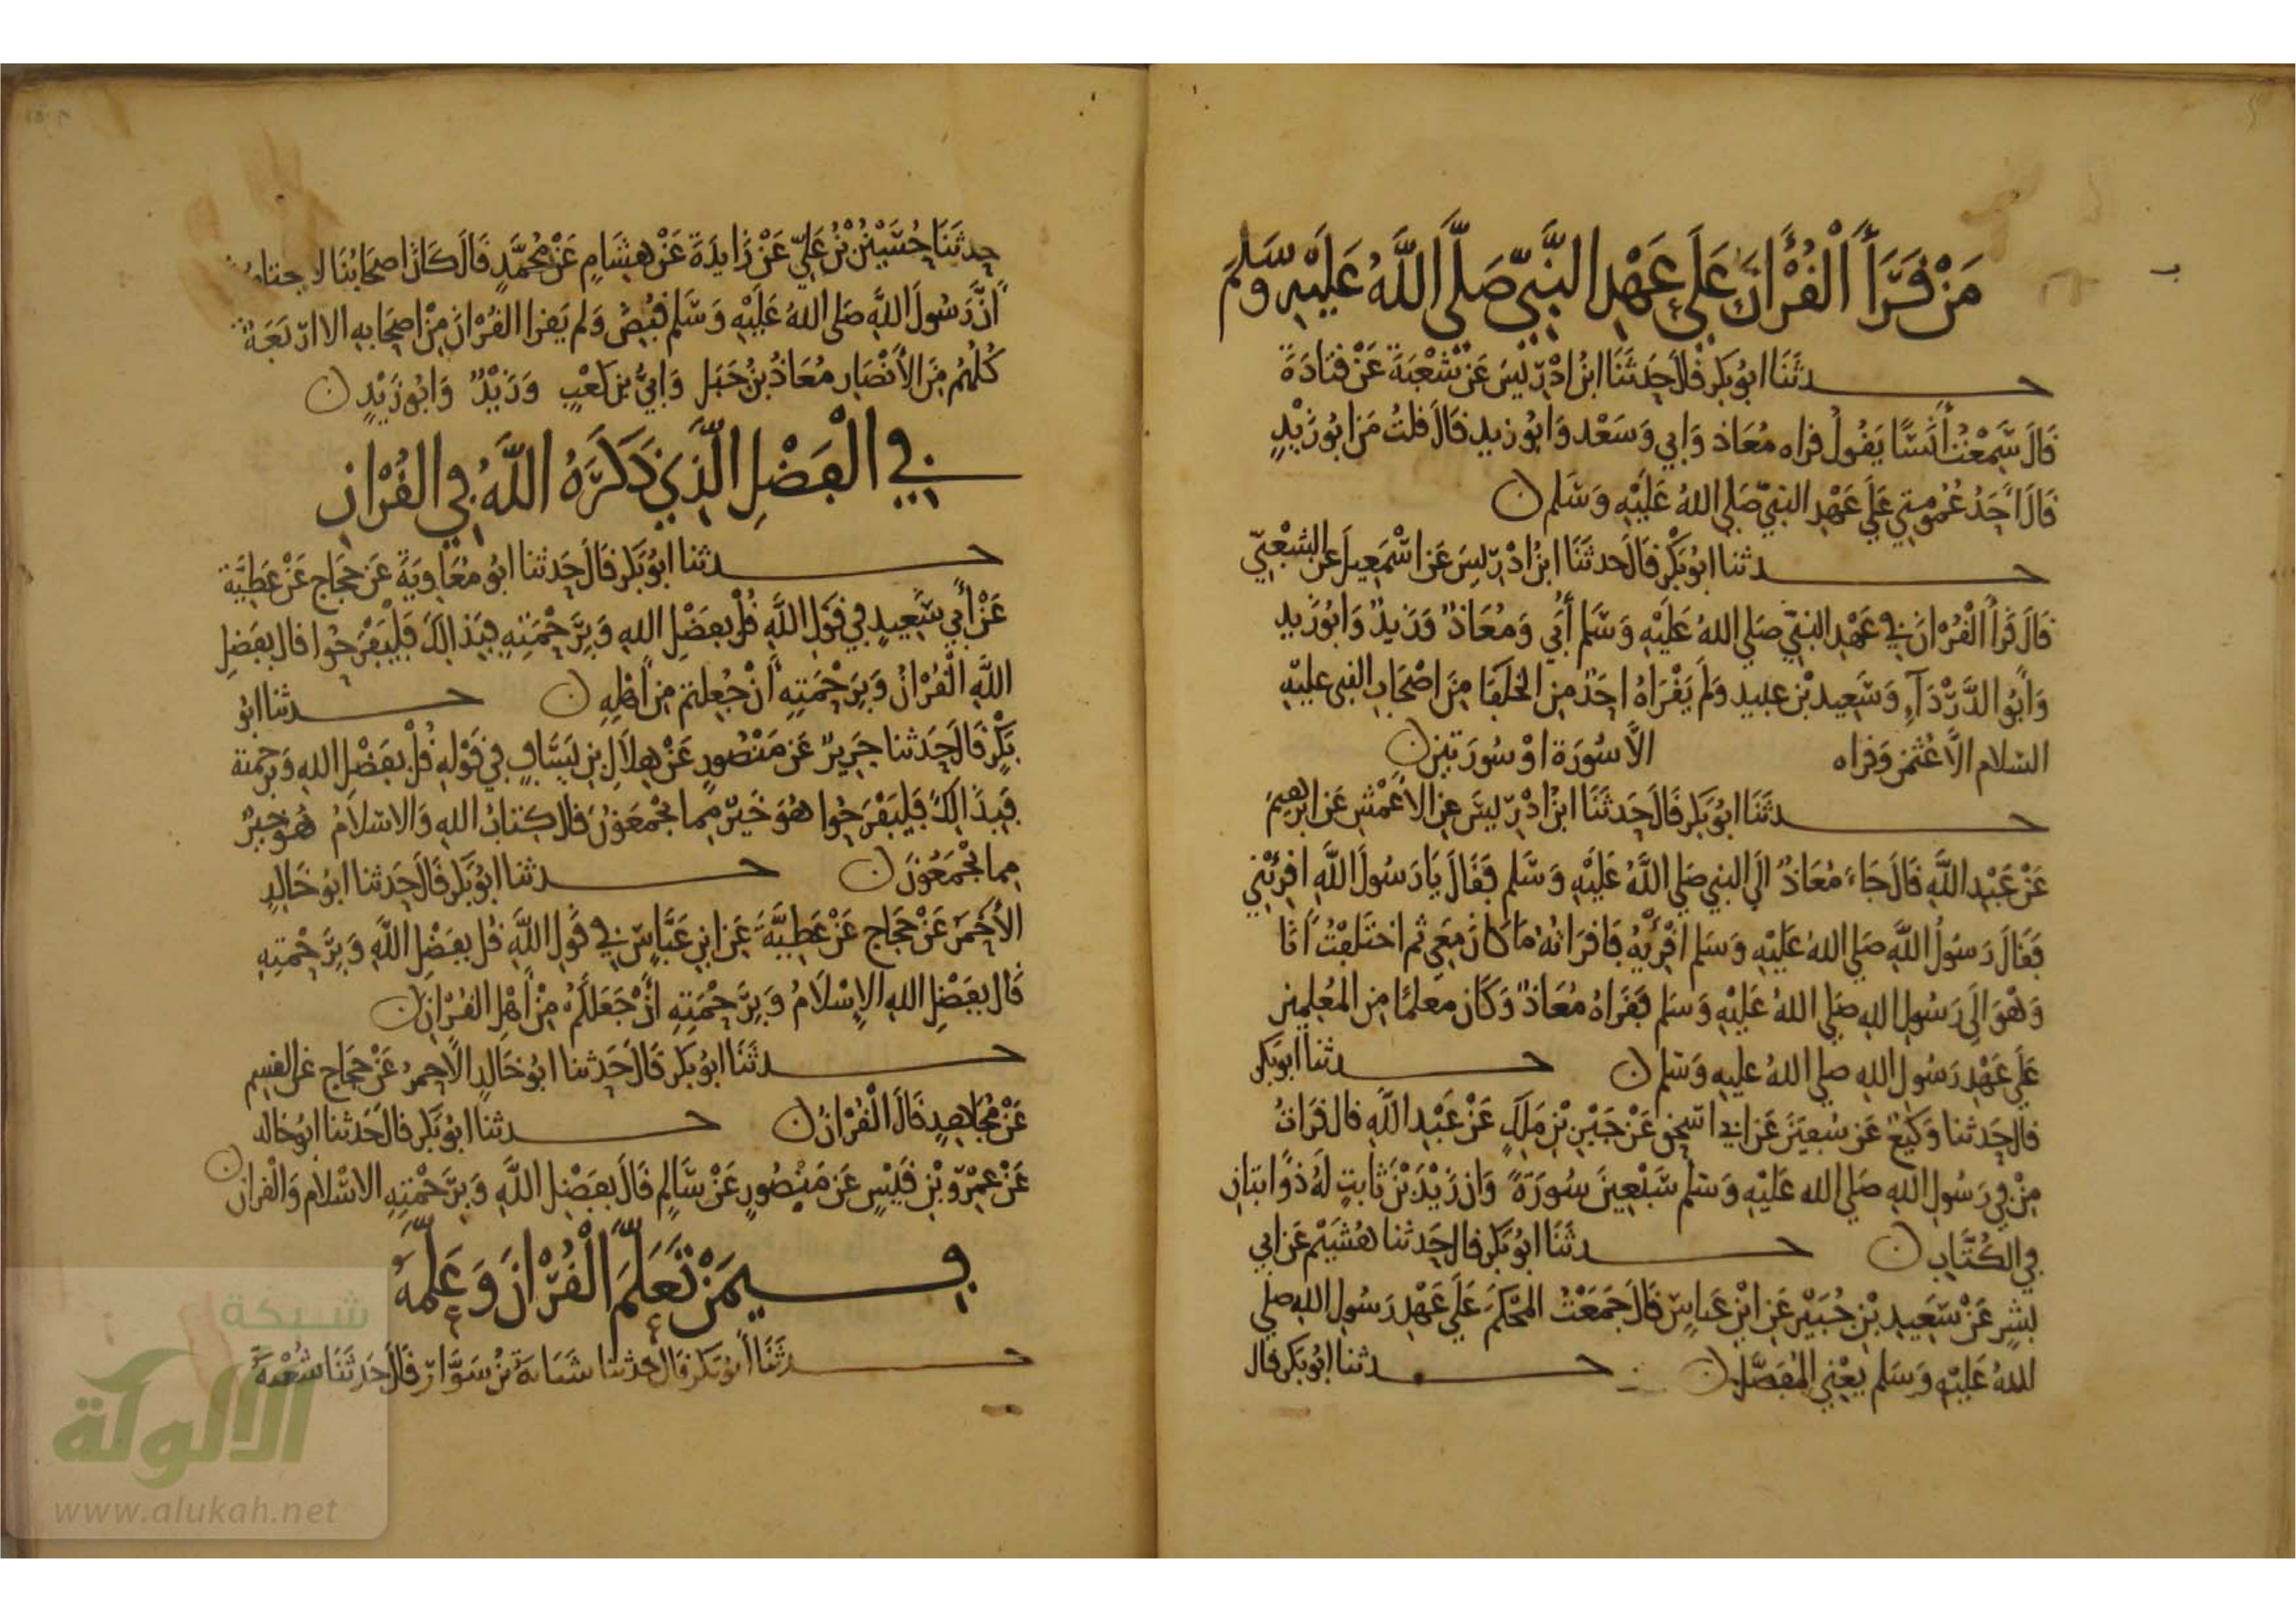 مَنْ قَرَأَ الْقُرْآنَ عَلَى عَهْدِ النَّبِيِّ صَلَّى اللَّهُ عَلَيْهِ وَسَلَّمَ
حدثنا ابو بكر قال حدثنا ابن ادريس عن شعبة عن قتادة
قال سمعت أنسا يقول قراه معاذ وابي وسعد وابو زيد قال قلت من ابو زيد
قال احد عمومتي على عهد النبي صلى الله عليه وسلم ن
حدثنا ابو بكر قال حدثنا ابن ادريس عن اسمعيل عن الشعبي
قال قرأ القران في عهد النبي صلى الله عليه وسلم أبي ومعاذ وزيد وابو زيد
وابو الدرداء وسعيد بن عبيد ولم يقراه احد من الخلفا من اصحاب النبي عليه
السلام الا عثمن وقراه الا سورة او سورتين ن
حدثنا ابو بكر قال حدثنا ابن ادريس عن الاعمش عن ابرهيم
عن عبد الله قال جاء معاذ الى النبي صلى الله عليه وسلم فقال يا رسول الله اقرئني
فقال رسول الله صلى الله عليه وسلم اقريه فاقراته ما كان معي ثم اختلفت انا
وهو الى رسول الله صلى الله عليه وسلم فقراه معاذ وكان معلما من المعلمين
على عهد رسول الله صلى الله عليه وسلم ن حدثنا ابو بكر
قال حدثنا وكيع عن سفين عن ابي اسحق عن عبد الله قال قرات
من في رسول الله صلى الله عليه وسلم سبعين سورة وان زيد بن ثابت له ذوابتان
في الكتاب ن حدثنا ابو بكر قال حدثنا هشيم عن ابي
بشر عن سعيد بن جبير عن ابن عباس قال جمعت المحكم على عهد رسول الله صلى
الله عليه وسلم يعني المفصل ن حدثنا ابو بكر قال
حدثنا حسين بن علي عن زايدة عن هشام عن محمد قال كان اصحابنا لا
ان رسول الله صلى الله عليه وسلم قبض ولم يقرا القران من اصحابه الا اربعة
كلهم من الانصار معاذ بن جبل وابي بن كعب وزيد وابو زيد ن
في الْفَضْلِ الَّذِي ذَكَرَهُ اللَّهُ فِي الْقُرْآنِ
حدثنا ابو بكر قال حدثنا ابو معاوية عن حجاج عن عطية
عن أبي سعيد في قول الله قل بفضل الله وبرحمته فبذالك فليفرحوا قال بفضل
الله القران وبرحمته أن جعلتم من اهله ن حدثنا ابو
بكر قال حدثنا جرير عن منصور عن هلال بن يساف في قوله قل بفضل الله وبرحمته
فبذالك فليفرحوا هو خير مما تجمعون قال كتاب الله والاسلام هو خير
مما تجمعون ن حدثنا ابو بكر قال حدثنا ابو خالد
الأحمر عن حجاج عن عطية عن ابن عباس في قول الله قل بفضل الله وبرحمته
قال بفضل الله الإسلام وبرحمته أن جعلكم من أهل القران ن
حدثنا ابو بكر قال حدثنا ابو خالد الاحمر عن حجاج عن القسم
عن مجاهد قال القران ن حدثنا ابو بكر قال حدثنا ابو خالد
عن عمرو بن قيس عن منصور عن سالم قال بفضل الله وبرحمته الاسلام والقران ن
فيمَنْ تَعَلَّمَ الْقُرْآنَ وَعَلَّمَهُ
حدثنا أبو بكر قال حدثنا شبابة بن سوار قال حدثنا شعبة
شبكة
الألوكة
www.alukah.net